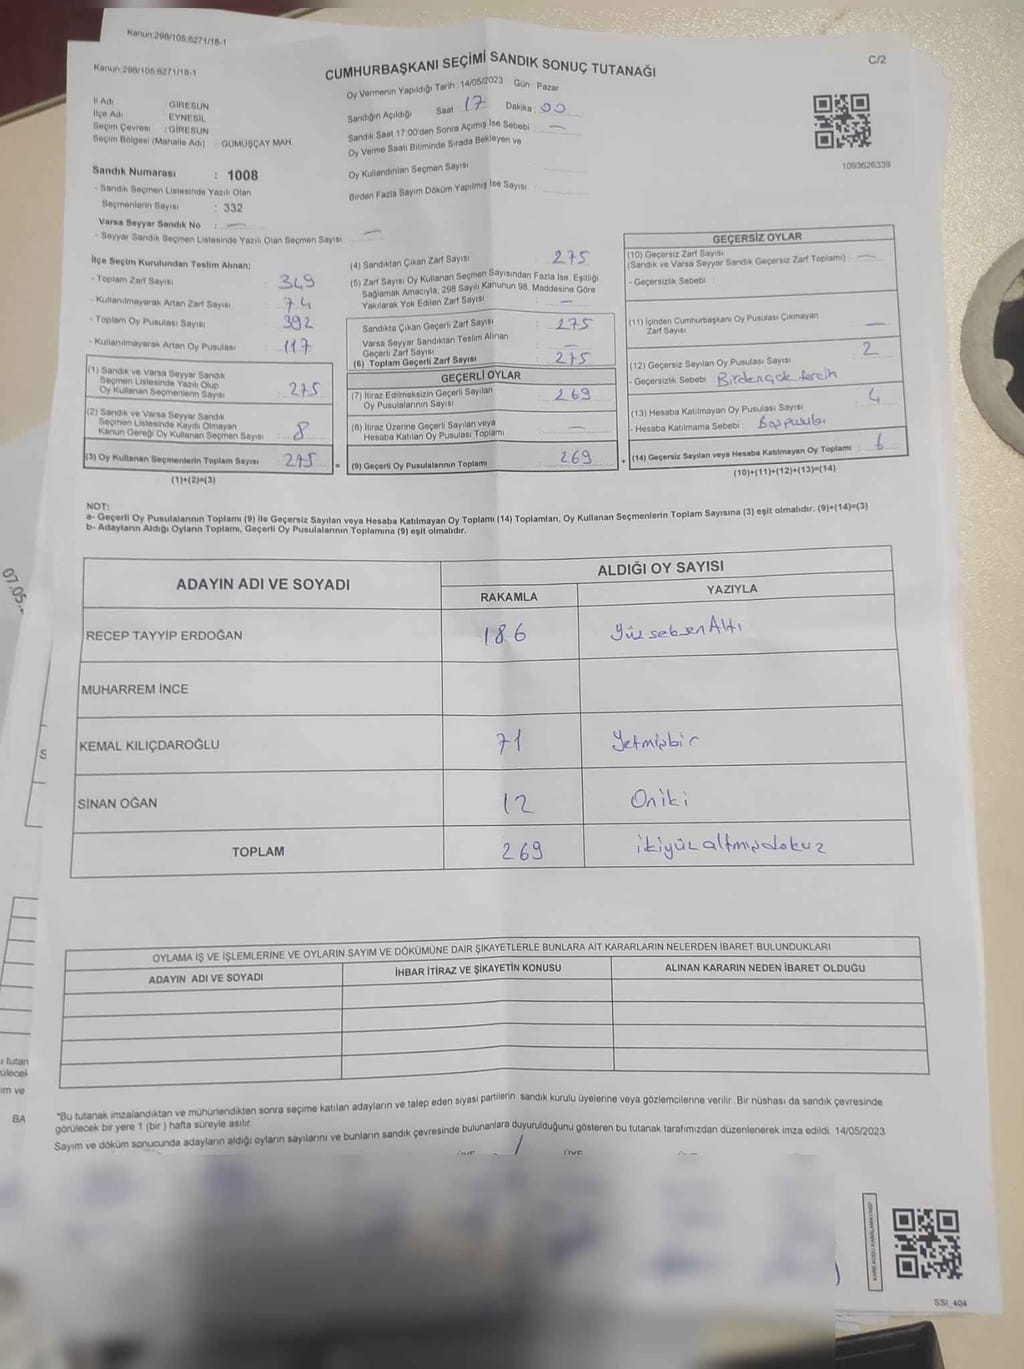 Kanun:298/105:6271/18-1
Kanun:298/105:6271/18-1
CUMHURBAŞKANI SEÇİMİ SANDIK SONUÇ TUTANAĞI
C/2
Oy Vermenin Yapıldığı Tarih : 14/05/2023 Gün : Pazar
İl Adı GİRESUN
İlçe Adı EYNESİL
Seçim Çevresi : GİRESUN
Seçim Bölgesi (Mahalle Adı) : GÜMÜŞÇAY MAH.
Sandığın Açıldığı Saat 17 Dakika : 00
Sandık Saat 17:00'den Sonra Açılmış İse Sebebi : —
Oy Verme Saati Bitiminde Sırada Bekleyen ve
Oy Kullandırılan Seçmen Sayısı
Birden Fazla Sayım Döküm Yapılmış İse Sayısı
1093626339
Sandık Numarası : 1008
- Sandık Seçmen Listesinde Yazılı Olan
Seçmenlerin Sayısı : 332
Varsa Seyyar Sandık No : —
- Seyyar Sandık Seçmen Listesinde Yazılı Olan Seçmen Sayısı —
İlçe Seçim Kurulundan Teslim Alınan:
- Toplam Zarf Sayısı : 349
- Kullanılmayarak Artan Zarf Sayısı : 74
- Toplam Oy Pusulası Sayısı : 392
- Kullanılmayarak Artan Oy Pusulası : 117
(1) Sandık ve Varsa Seyyar Sandık
Seçmen Listesinde Yazılı Olup
Oy Kullanan Seçmenlerin Sayısı : 275
(2) Sandık ve Varsa Seyyar Sandık
Seçmen Listesinde Kaydı Olmayan
Kanun Gereği Oy Kullanan Seçmen Sayısı : 8
(3) Oy Kullanan Seçmenlerin Toplam Sayısı : 275
(1)+(2)=(3)
(4) Sandıktan Çıkan Zarf Sayısı : 275
(5) Zarf Sayısı Oy Kullanan Seçmen Sayısından Fazla İse, Eşitliği
Sağlamak Amacıyla, 298 Sayılı Kanunun 98. Maddesine Göre
Yakılarak Yok Edilen Zarf Sayısı : —
Sandıkta Çıkan Geçerli Zarf Sayısı : 275
Varsa Seyyar Sandıktan Teslim Alınan
Geçerli Zarf Sayısı : —
(6) Toplam Geçerli Zarf Sayısı : 275
GEÇERLİ OYLAR
(7) İtiraz Edilmeksizin Geçerli Sayılan
Oy Pusulalarının Sayısı : 269
(8) İtiraz Üzerine Geçerli Sayılan veya
Hesaba Katılan Oy Pusulası Toplamı : —
= (9) Geçerli Oy Pusulalarının Toplamı : 269
GEÇERSİZ OYLAR
(10) Geçersiz Zarf Sayısı
(Sandık ve Varsa Seyyar Sandık Geçersiz Zarf Toplamı) : —
- Geçersizlik Sebebi :
(11) İçinden Cumhurbaşkanı Oy Pusulası Çıkmayan
Zarf Sayısı —
(12) Geçersiz Sayılan Oy Pusulası Sayısı : 2
- Geçersizlik Sebebi : Birden çok tercih
(13) Hesaba Katılmayan Oy Pusulası Sayısı : 4
- Hesaba Katılmama Sebebi : Boş pusula
+ (14) Geçersiz Sayılan veya Hesaba Katılmayan Oy Toplamı : 6
(10)+(11)+(12)+(13)=(14)
NOT:
a- Geçerli Oy Pusulalarının Toplamı (9) ile Geçersiz Sayılan veya Hesaba Katılmayan Oy Toplamı (14) Toplamları, Oy Kullanan Seçmenlerin Toplam Sayısına (3) eşit olmalıdır. (9)+(14)=(3)
b- Adayların Aldığı Oyların Toplamı, Geçerli Oy Pusulalarının Toplamına (9) eşit olmalıdır.
ADAYIN ADI VE SOYADI
ALDIĞI OY SAYISI
RAKAMLA YAZIYLA
RECEP TAYYİP ERDOĞAN 186 Yüz seksen Altı
MUHARREM İNCE
KEMAL KILIÇDAROĞLU 71 Yetmişbir
SİNAN OĞAN 12 Oniki
TOPLAM 269 ikiyüz altmışdokuz
OYLAMA İŞ VE İŞLEMLERİNE VE OYLARIN SAYIM VE DÖKÜMÜNE DAİR ŞİKAYETLERLE BUNLARA AİT KARARLARIN NELERDEN İBARET BULUNDUKLARI
ADAYIN ADI VE SOYADI İHBAR İTİRAZ VE ŞİKAYETİN KONUSU ALINAN KARARIN NEDEN İBARET OLDUĞU
*Bu tutanak imzalandıktan ve mühürlendikten sonra seçime katılan adayların ve talep eden siyasi partilerin sandık kurulu üyelerine veya gözlemcilerine verilir. Bir nüshası da sandık çevresinde
görülecek bir yere 1 (bir) hafta süreyle asılır.
Sayım ve döküm sonucunda adayların aldığı oyların sayılarını ve bunların sandık çevresinde bulunanlara duyurulduğunu gösteren bu tutanak tarafımızdan düzenlenerek imza edildi. 14/05/2023
KARE KODU KARALAMAYINIZ!
SSI_404
07.05.
S
BA